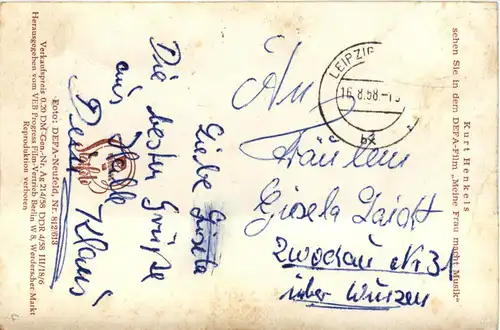 Kurt Henkels
sehen Sie in dem DEFA-Film „Meine Frau macht Musik"
LEIPZIG
16.8.58.-1
bx
An
Fräulein
Gisela
Zwochau Nr 31
über Wurzen
Liebe Gisela
Die besten Grüße
aus Halle
Dein Klaus
Foto: DEFA-Neufeld, Nr. 812/613
Verkaufspreis 0,20 DM Gen.-Nr. Ag 214/58 DDR 4/58 III/18/6
Herausgegeben vom VEB Progress Film-Vertrieb Berlin W 8, Werderscher Markt
Reproduktion verboten